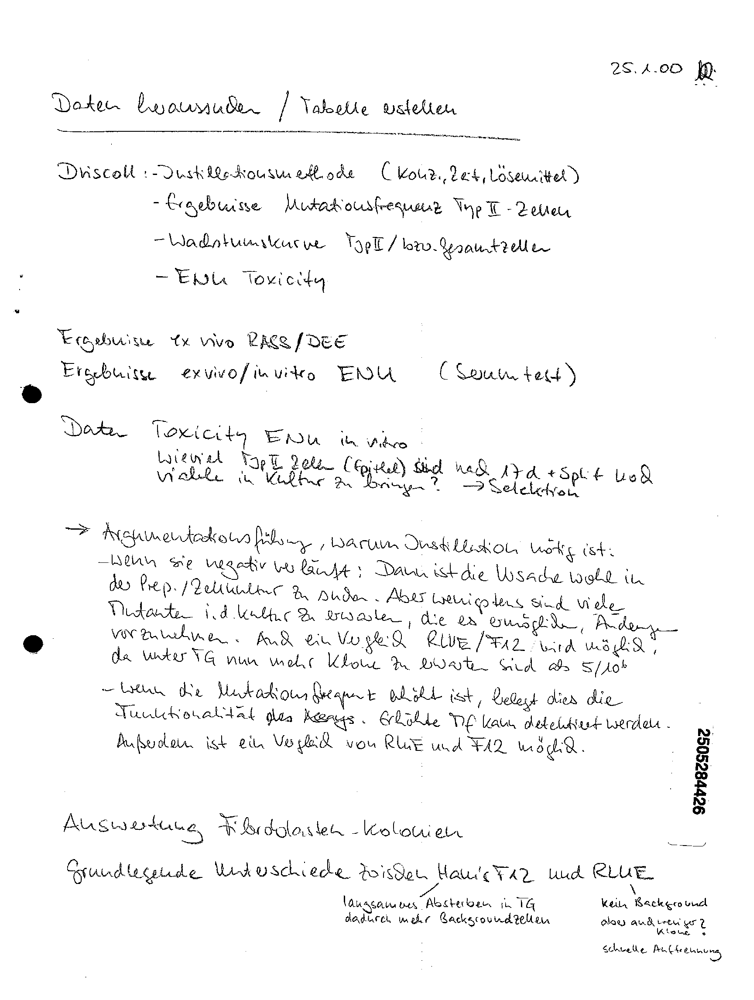 25.1.00
Daten heraussuchen / Tabelle erstellen
Driscoll: - Instillationsmethode (Konz., Zeit, Lösemittel)
- Ergebnisse Mutationsfrequenz Typ II - Zellen
- Wachstumskurve Typ II / bzw. Gesamtzellen
- ENU Toxicity
Ergebnisse ex vivo RASS/DEE
Ergebnisse ex vivo/in vitro ENU (Serumtest)
Daten Toxicity ENU in vitro
Wieviel Typ II Zellen (Epithel) sind nach 17d + Split noch
viable in Kultur zu bringen? → Selektion
→ Argumentationsführung, warum Instillation nötig ist:
- Wenn sie negativ verläuft: Dann ist die Ursache wohl in
der Prep./Zellkultur zu suchen. Aber wenigstens sind viele
Mutanten i.d. Kultur zu erwarten, die es ermöglichen, Änderungen
vorzunehmen. Auch ein Vergleich RLUE/F12 wird möglich,
da unter TG nun mehr Klone zu erwarten sind als 5/10⁶
- Wenn die Mutationsfrequenz erhöht ist, belegt dies die
Funktionalität des Assays. Erhöhte Mf kann detektiert werden.
Außerdem ist ein Vergleich von RLUE und F12 möglich.
2505284426
Auswertung Fibroblasten - Kolonien
Grundlegende Unterschiede zwischen Ham's F12 und RLUE
langsames Absterben in TG
dadurch mehr Backgroundzellen
kein Background
aber auch weniger
Klone?
schnelle Auftrennung